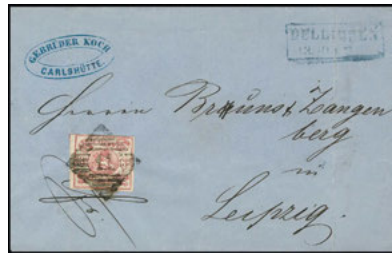 GEBRÜDER KOCH
CARLSHÜTTE.
DELLIGSEN
Herrn Brauns & Zangen
berg
in
Leipzig.